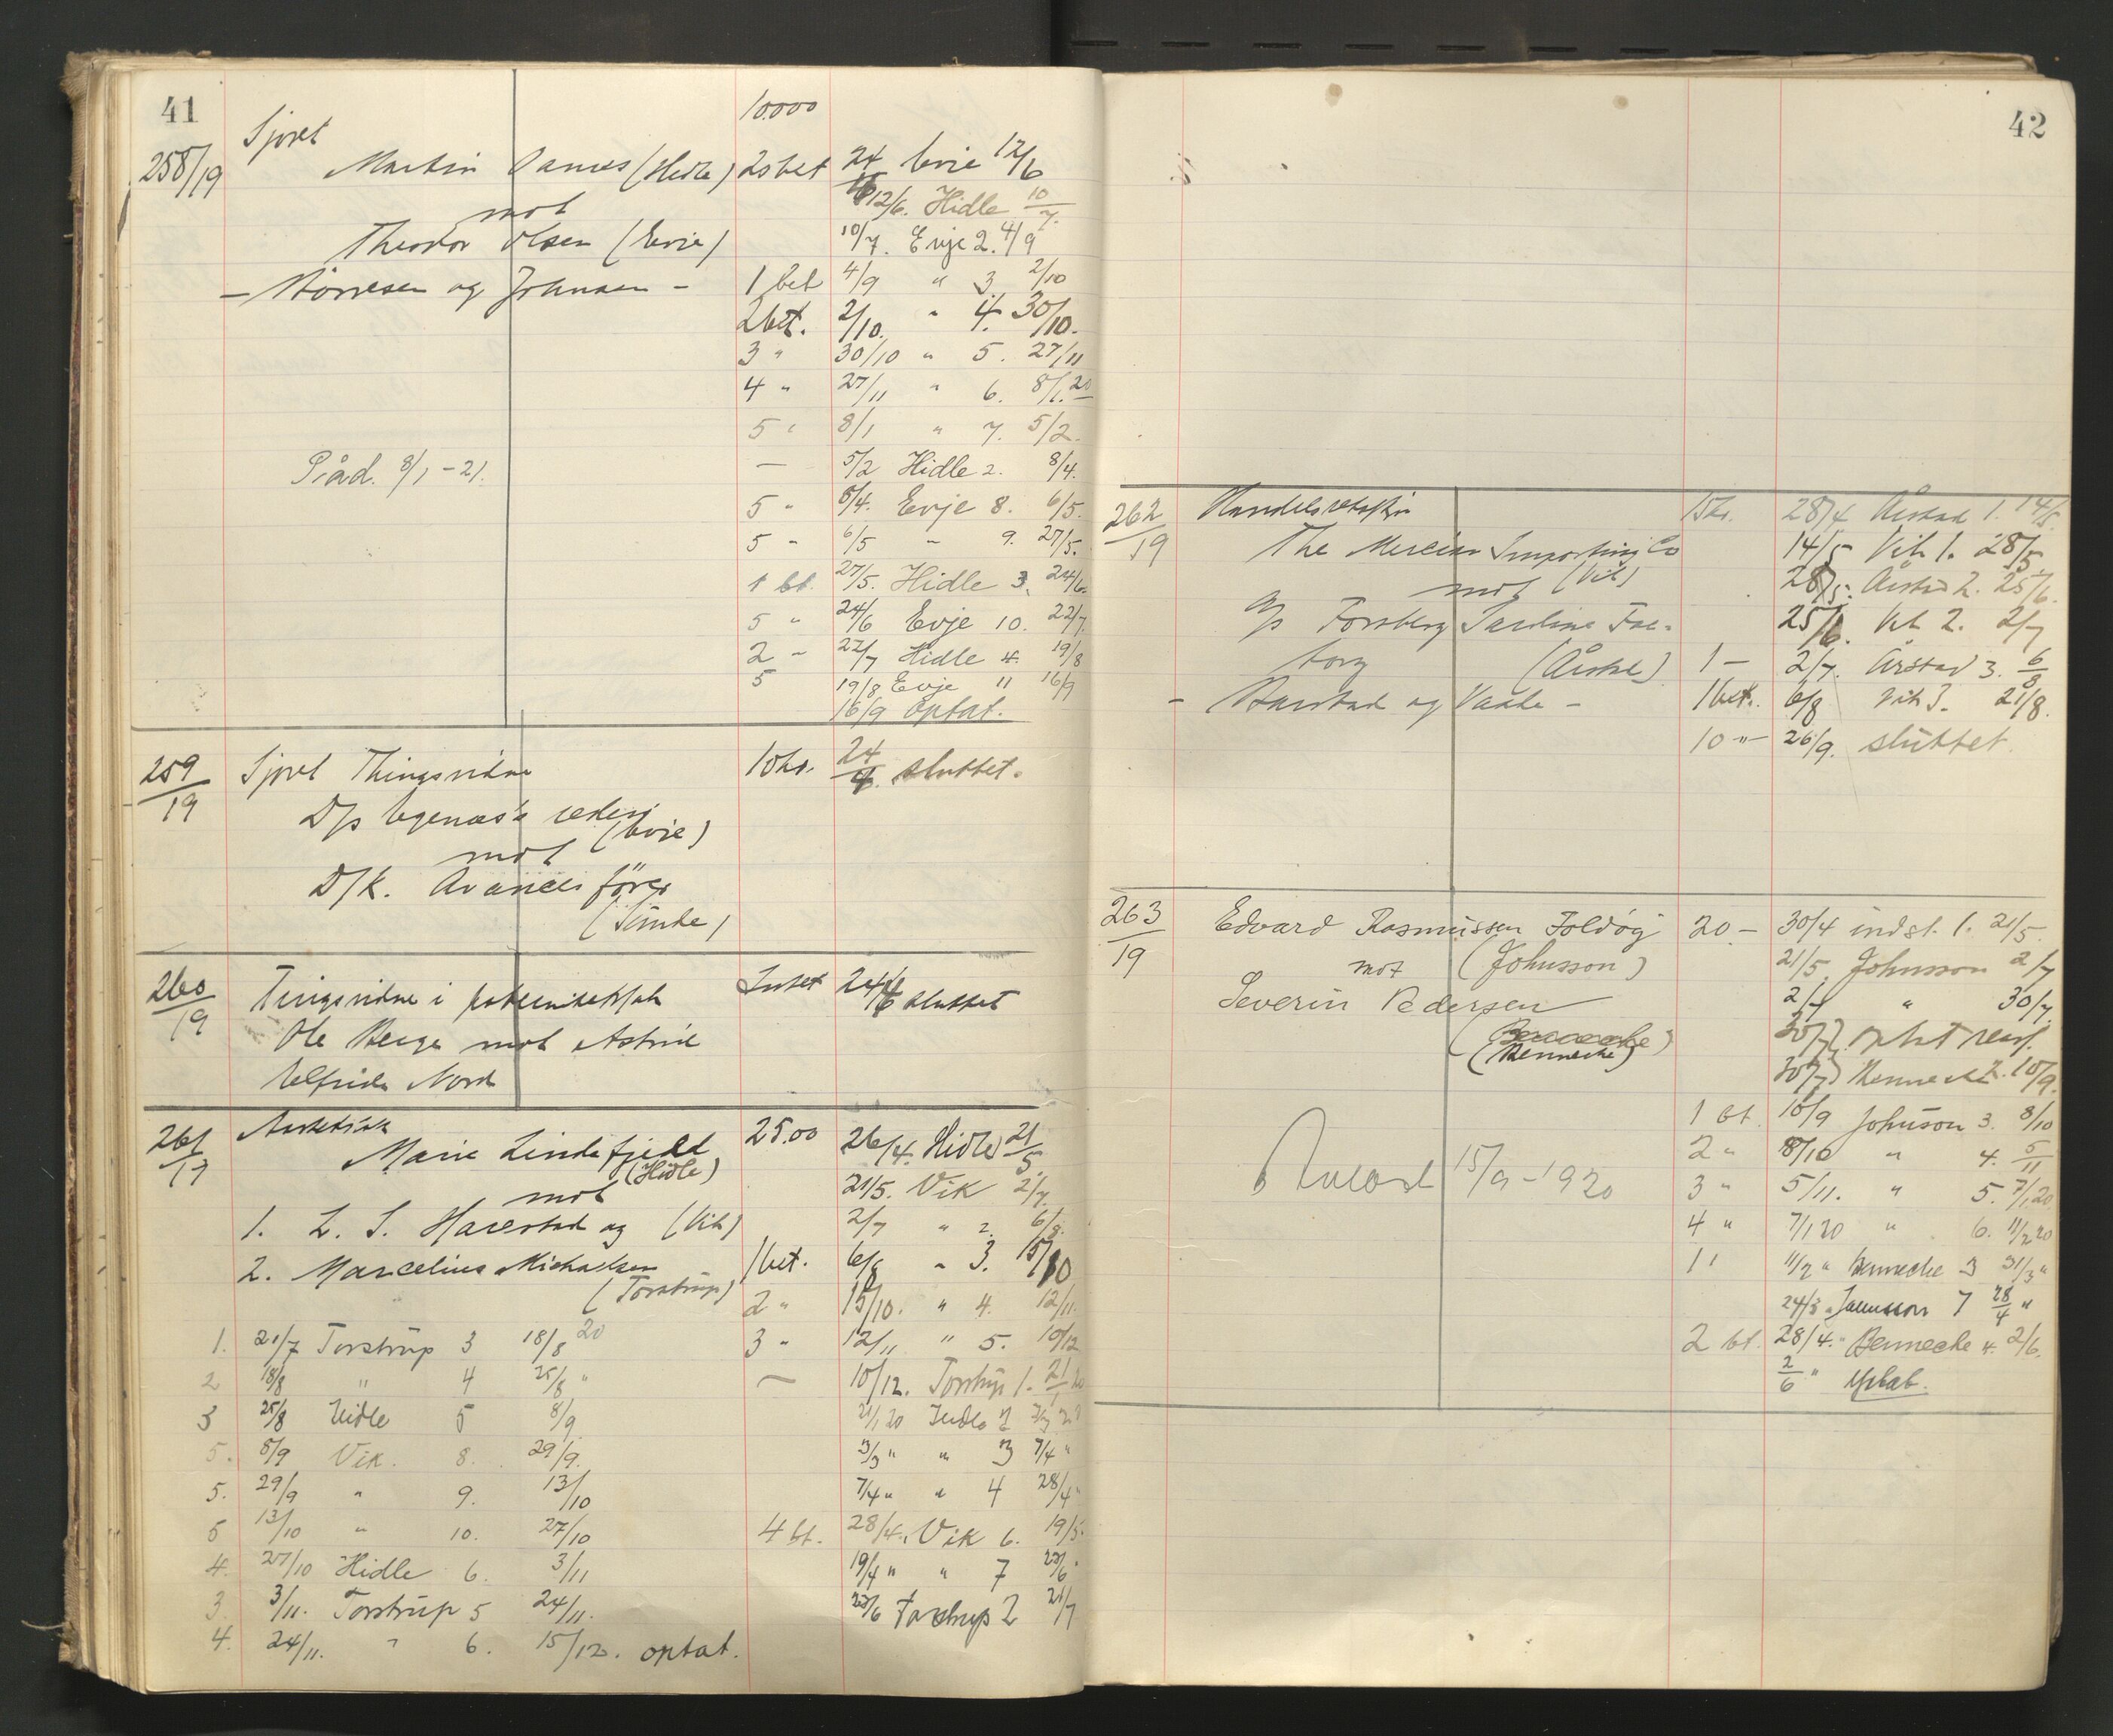 41
10.000
258/19 Sjøret
Martin (Hidle) 2det 24 Evje 12/6
mot 12/6. Hidle 10/7.
Theodor Olsen (Evje) 10/7. Evje 2. 4/9
og Johnsen - 1 bet 4/9 " 3. 2/10
2 bet. 2/10. " 4. 30/10.
3 " 30/10 " 5. 27/11
4 " 27/11 " 6. 8/1.20
5 " 8/1 " 7. 5/2.
Påd. 8/1-21. — 5/2 Hidle 2. 8/4.
5 " 8/4. Evje 8. 6/5.
5 " 6/5 " 9. 27/5.
1 bt. 27/5. Hidle 3. 24/6.
5 " 24/6 Evje 10. 22/7.
2 " 22/7 Hidle 4. 19/8
5 19/8 Evje 11 16/9
16/9 optat.
259/19 Sjøret Thingsvidne 10 kr. 24/4. sluttet.
D/s rederi
(Evje)
mot
D/K. Avances fører
260/19 Tingsvidne i 24/4 sluttet
Ole Berge mot Astrid
Elfrida Nord
261/19 25.00 26/4. Hidle 21/5.
Marie Lindefjeld
(Hidle) 21/5. Vik 2/7.
mot
1. L. S. Harestad og (Vik) 2/7 " 2. 6/8.
2. Marcelius Michaelsen 1 bet. 6/8 " 3. 15/10
(Torstrup) 2 " 15/10. " 4. 12/11.
1. 21/7 Torstrup 3 18/8 20 3 " 12/11 " 5. 10/12
2 18/8 " 4 25/8 " — 10/12. Torstrup 1. 21/1 20
3 25/8 Hidle 5 8/9 21/1 20 Hidle 2
5. 8/9 Vik. 8. 29/9. 3/3 " " 3 7/4 "
5. 29/9 " 9. 13/10 7/4 " " 4 28/4 "
5 13/10 " 10. 27/10 4 bt. 28/4. Vik 6. 19/5.
4. 27/10 Hidle 6. 3/11 19/4 " " 7 23/6 "
3. 3/11. Torstrup 5 24/11. 23/6 Torstrup 2 21/7
4. 24/11. " 6. 15/12. optat.
42
262/19 15 kr. 28/4 Årstad 1. 14/5.
The Mercian Importing Co 14/5 Vik 1. 28/5.
mot (Vik) 28/5. Årstad 2. 25/6.
A/s Forsberg Sardine Fac- 25/6. Vik 2. 2/7
tory 1 — 2/7. Årstad 3. 6/8
- og - 1 bet. 6/8 Vik 3. 21/8.
10 " 26/9. sluttet.
263/19 Edvard Rasmussen Foldøy 20 — 30/4 indst. 1. 21/5.
mot (Johnsson) 21/5. Johnsson 2/7
Severin Pedersen 2/7 " 30/7.
30/7
(Bennecke) 30/7 Bennecke 2. 10/9.
1 bt. 10/9 Johnson 3. 8/10
2 " 8/10 " 4. 5/11
15/9-1920 3 " 5/11. " 5. 7/1 20
4 " 7/1 20 " 6. 11/2 20
1 " 11/2 " Bennecke 3 31/3 "
24/3 " Johnsson 7 28/4 "
2 bt. 28/4. " Bennecke 4. 2/6.
2/6 " optat.